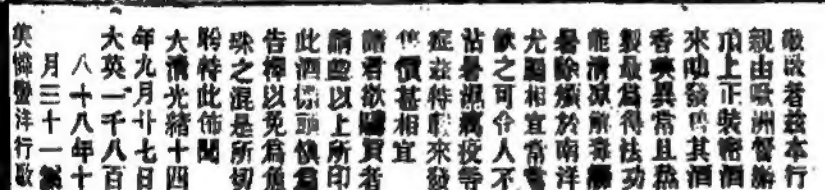 敬啟者茲本行
親由歐洲督辦
頂上正裝密酒
來叻發售其酒
香美異常且蒸
製最爲得法功
能清凉解毒
暑除煩於南洋
尤爲相宜常常
飲之可令人不
沾暑濕癘疫等
症茲特載來發
售價甚相宜
諸君欲購買者
請認以上所印
此酒標頭愼爲
告稟以免爲魚
珠之混是所切
盼特此佈聞
大清光緒十四
年九月廿七日
大英一千八百
八十八年十
月三十一號
洋行啟